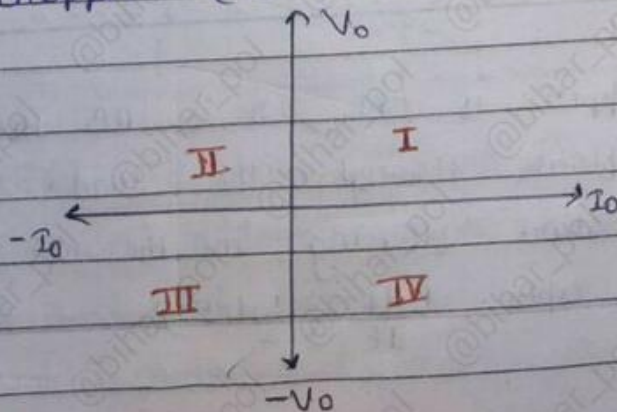 V₀
II I
-I₀ I₀
III IV
-V₀
@bihar_pol